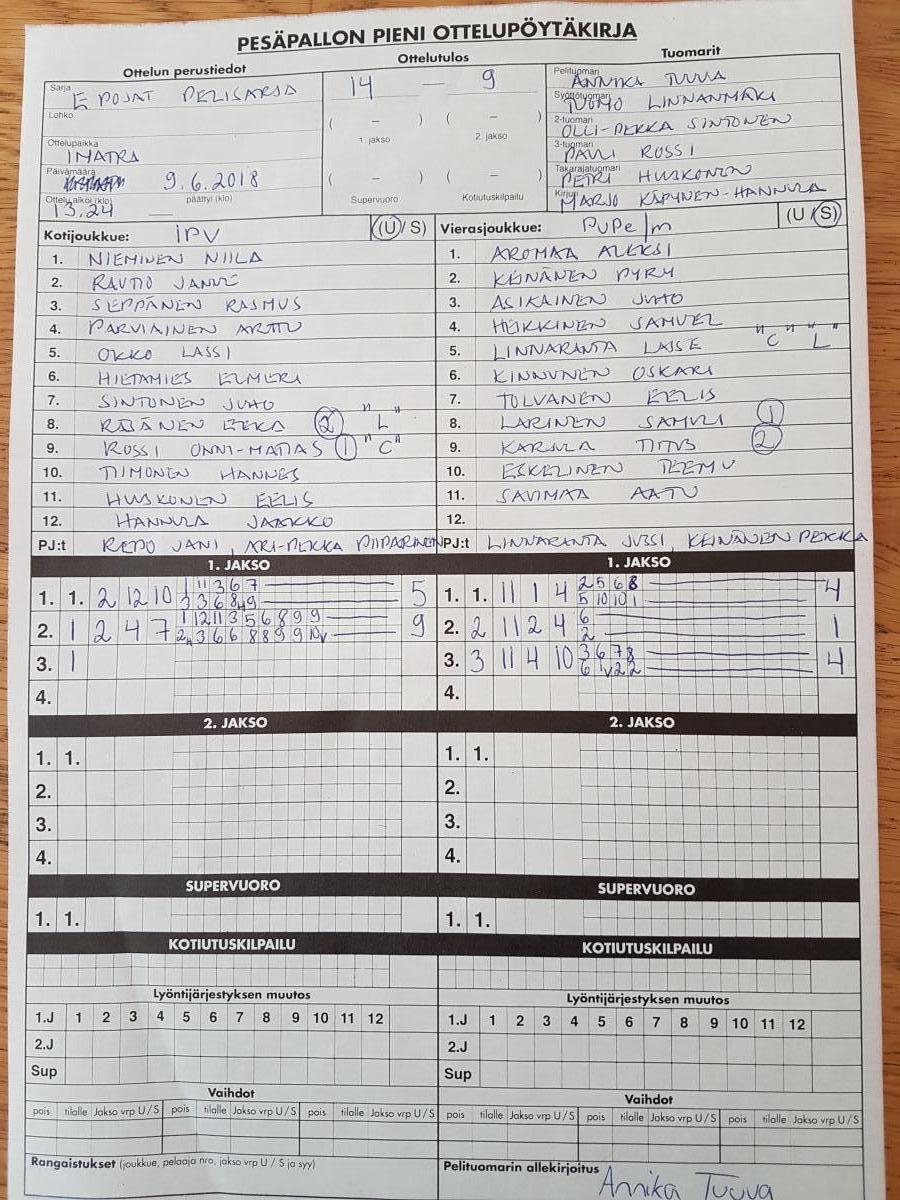 PESÄPALLON PIENI OTTELUPÖYTÄKIRJA
Ottelun perustiedot
Ottelutulos
Tuomarit
Sarja E POJAT PELISARJA
Lohko
Ottelupaikka IMATRA
Päivämäärä 9.6.2018
Ottelu alkoi (klo) 13.24 päättyi (klo)
14 — 9
( – ) ( – )
1. jakso 2. jakso
( – ) ( – )
Supervuoro Kotiutuskilpailu
Pelituomari ANNIKA TUUVA
Syöttötuomari TUOMO LINNANMÄKI
2-tuomari OLLI-PEKKA SINTONEN
3-tuomari PAULI ROSSI
Takarajatuomari PETRI HUSKONEN
Kirjuri MARJO KÄPYNEN-HANNULA
Kotijoukkue: IPV (U/ S)
1. NIEMINEN NIILA
2. RAUTIO JANNE
3. SEPPÄNEN RASMUS
4. PARVIAINEN ARTTU
5. OKKO LASSI
6. HIETAMIES ELMERI
7. SINTONEN JUHO
8. RÄSÄNEN EEKA 2 "L"
9. ROSSI ONNI-MATIAS 1 "C"
10. TIIMONEN HANNES
11. HUSKONEN EELIS
12. HANNULA JAAKKO
PJ:t REPO JANI, ARI-PEKKA PIIPARINEN
Vierasjoukkue: PuPe/m (U / S)
1. AROMAA ALEKSI
2. KEINÄNEN PYRY
3. ASIKAINEN JUHO
4. HEIKKINEN SAMUEL
5. LINNARANTA LASSE "C" "L"
6. KINNUNEN OSKARI
7. TOLVANEN EELIS
8. LARINEN SAMULI 1
9. KARJULA TITUS 2
10. ESKELINEN TEEMU
11. SAVIMAA AATU
12.
PJ:t LINNARANTA JUSSI, KEINÄNEN PEKKA
1. JAKSO
1. 1. 2 12 10 5
2. 1 2 4 7 9
3. 1
4.
1. JAKSO
1. 1. 11 1 4 2 5 6 8 4
5 10 10 1
2. 2 11 2 4 6 1
2
3. 3 11 4 10 3 6 7 8 4
4.
2. JAKSO
1. 1.
2.
3.
4.
2. JAKSO
1. 1.
2.
3.
4.
SUPERVUORO
1. 1.
SUPERVUORO
1. 1.
KOTIUTUSKILPAILU
KOTIUTUSKILPAILU
Lyöntijärjestyksen muutos
1.J 1 2 3 4 5 6 7 8 9 10 11 12
2.J
Sup
Lyöntijärjestyksen muutos
1.J 1 2 3 4 5 6 7 8 9 10 11 12
2.J
Sup
Vaihdot
pois tilalle Jakso vrp U / S pois tilalle Jakso vrp U / S pois tilalle Jakso vrp U / S
Vaihdot
pois tilalle Jakso vrp U / S pois tilalle Jakso vrp U / S pois tilalle Jakso vrp U / S
Rangaistukset (joukkue, pelaaja nro, jakso vrp U / S ja syy)
Pelituomarin allekirjoitus Annika Tuuva